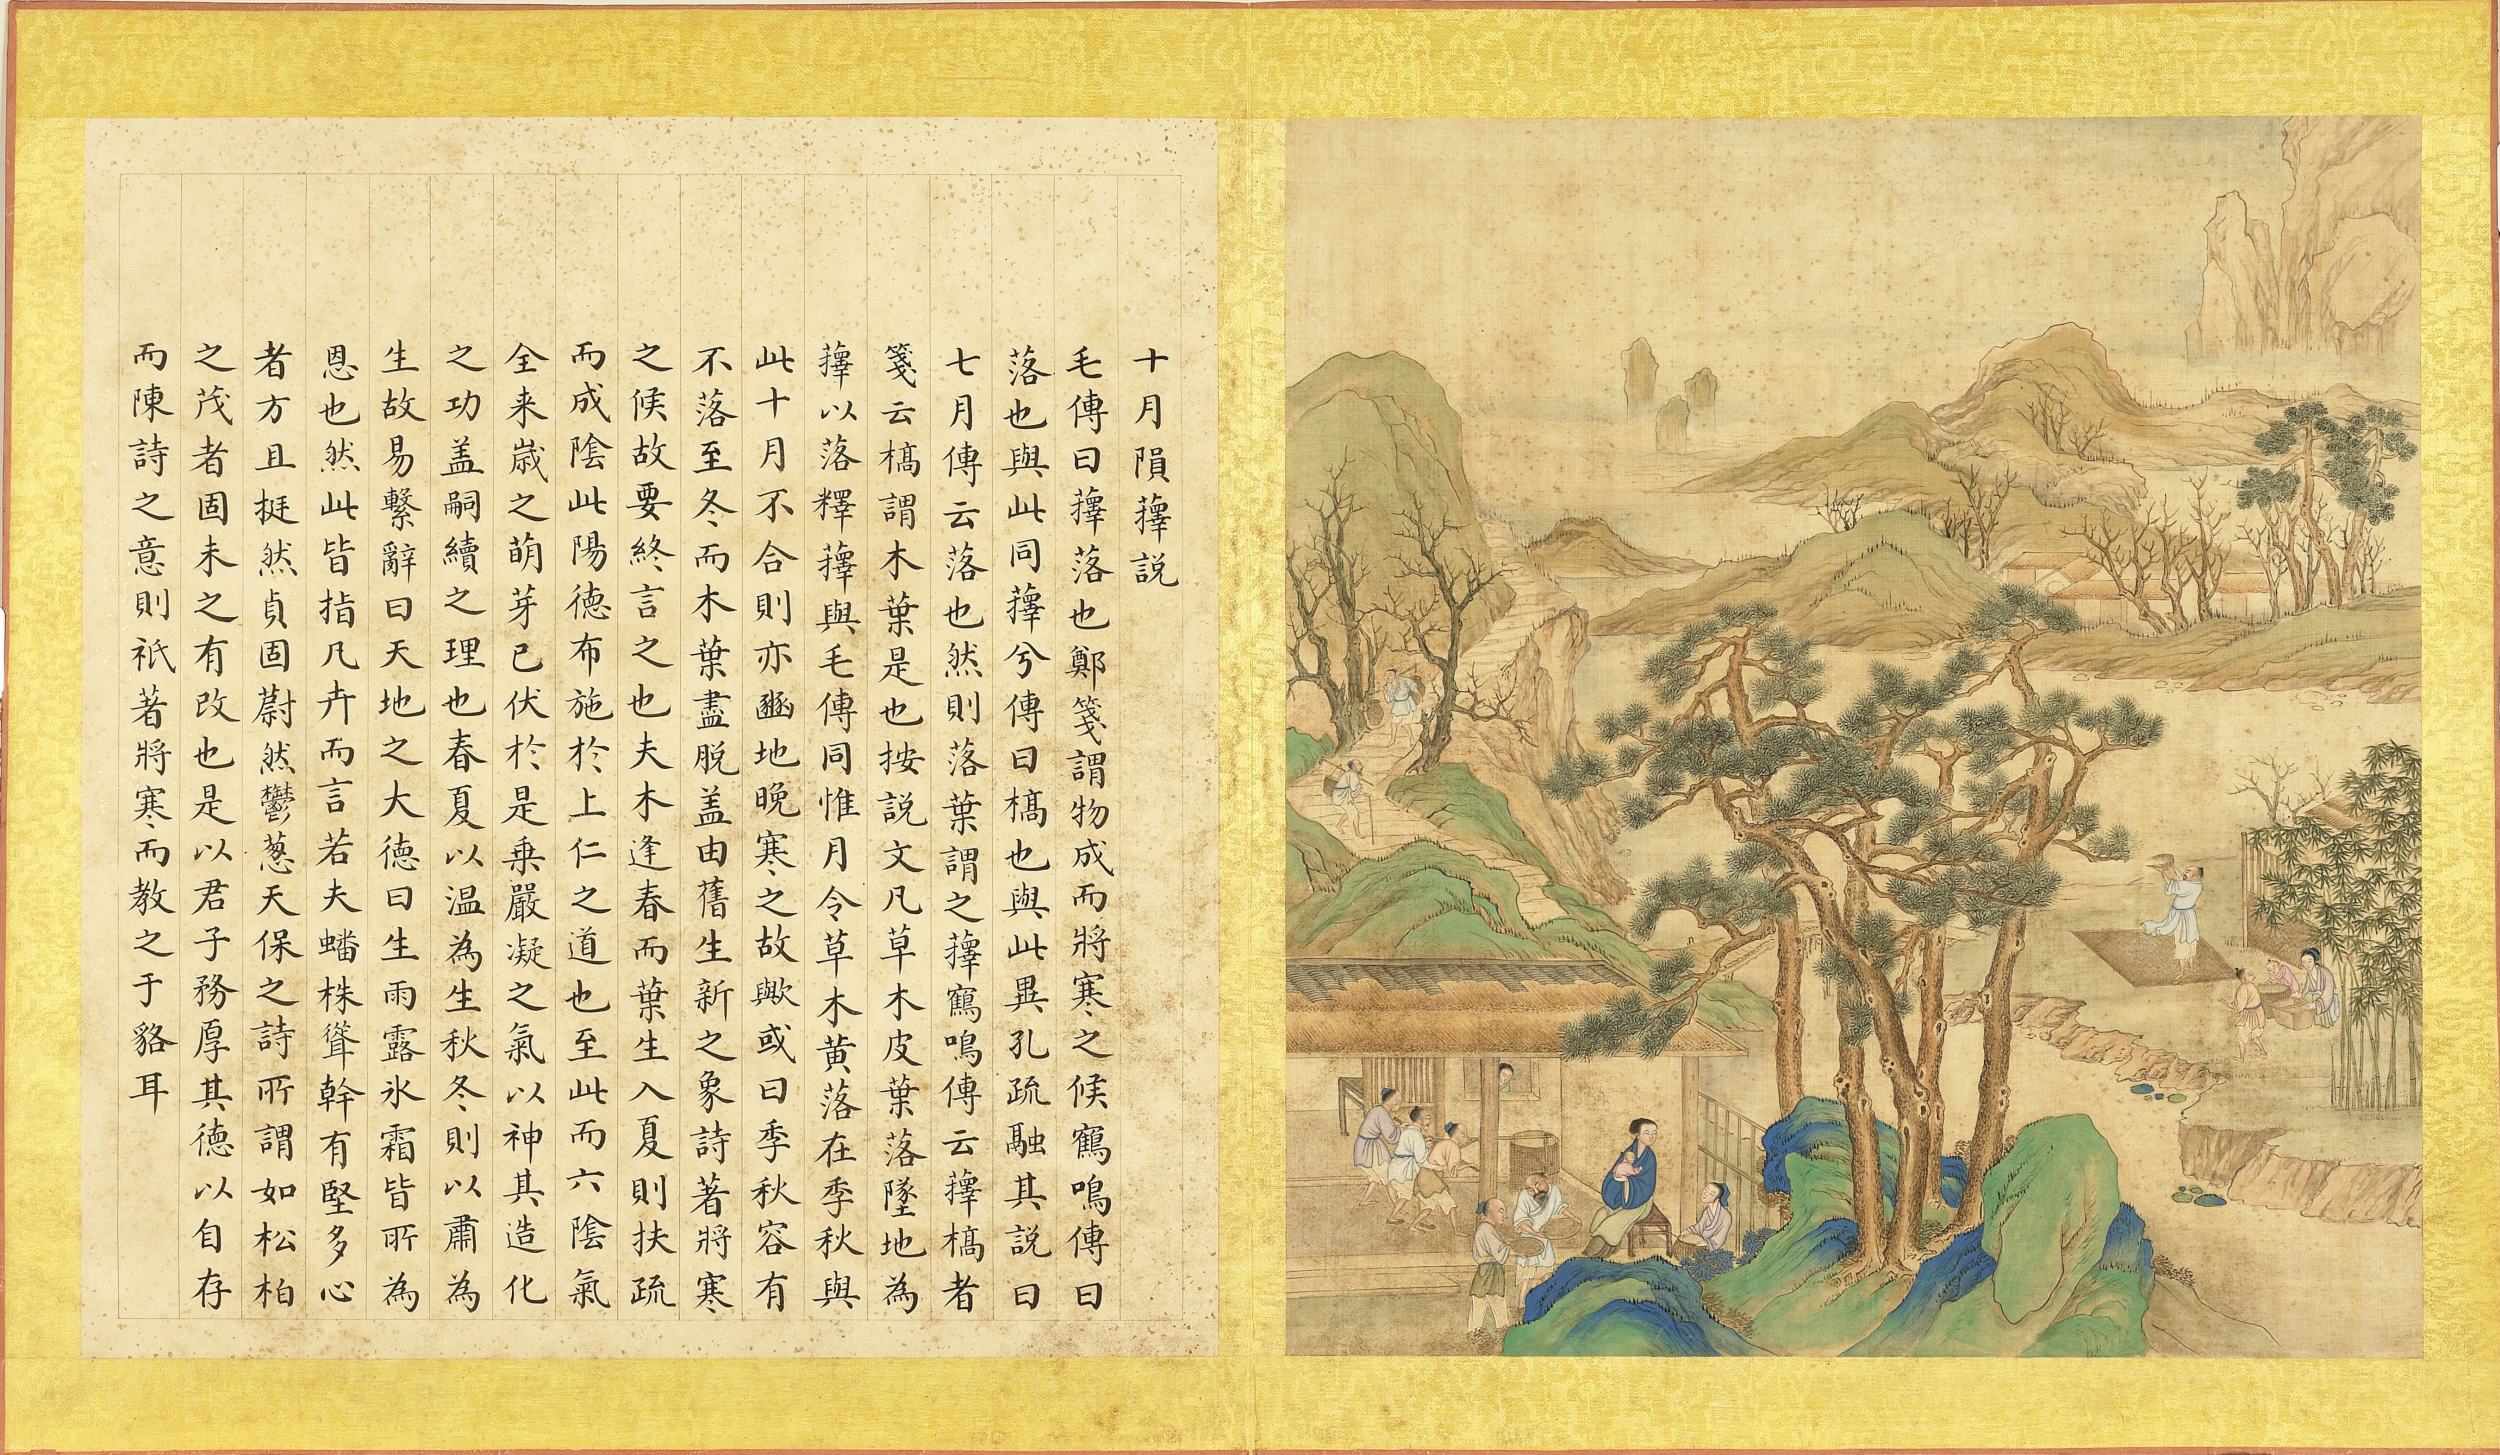 十月隕蘀説
毛傳曰蘀落也鄭箋謂物成而將寒之候鶴鳴傳曰
落也與此同蘀兮傳曰槁也與此異孔疏融其説曰
七月傳云落也然則落葉謂之蘀鶴鳴傳云蘀槁者
箋云槁謂木葉是也按説文凡草木皮葉落墜地為
蘀以落釋蘀與毛傳同惟月令草木黄落在季秋與
此十月不合則亦豳地晚寒之故歟或曰季秋容有
不落至冬而木葉盡脱盖由舊生新之象詩著將寒
之候故要終言之也夫木逢春而葉生入夏則扶疏
而成陰此陽德布施於上仁之道也至此而六陰氣
全来歳之萌芽已伏於是乗嚴凝之氣以神其造化
之功盖嗣續之理也春夏以温為生秋冬則以肅為
生故易繫辭曰天地之大德曰生雨露氷霜皆所為
恩也然此皆指凡卉而言若夫蟠株聳幹有堅多心
者方且挺然貞固蔚然鬱葱天保之詩所謂如松柏
之茂者固未之有改也是以君子務厚其德以自存
而陳詩之意則祇著將寒而教之于貉耳